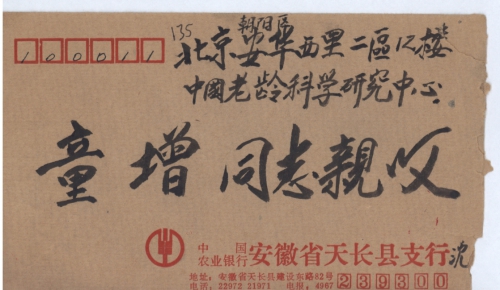 135
朝阳区
100011
北京安华西里二區12楼
中國老龄科学研究中心
童增同志親收
中国农业银行安徽省天长县支行 沈
地址：安徽省天长县建设东路82号
电话：22972 21971 电报：4967 239300